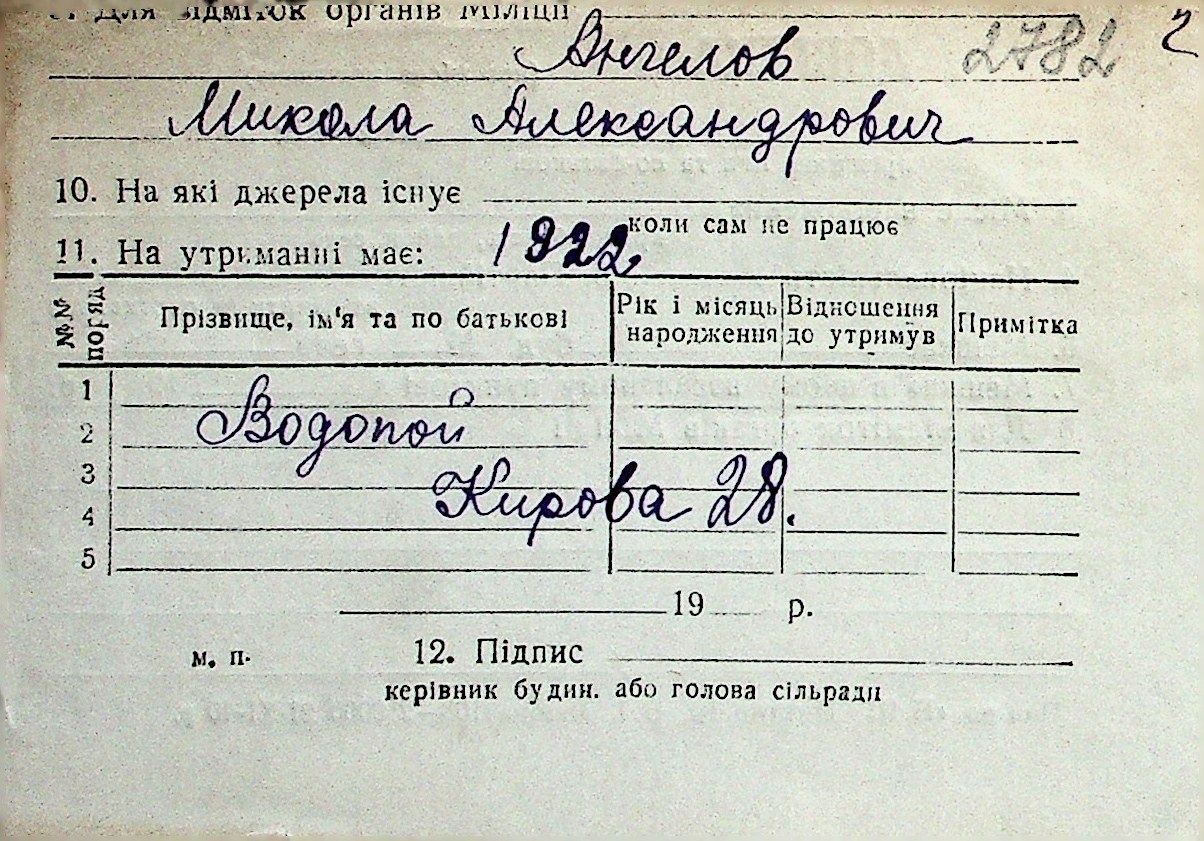 Для відміток органів Міліції
Ангелов 2782
Микола Александрович
10. На які джерела існує
коли сам не працює
11. На утриманні має: 1922
№№ поряд
Прізвище, ім'я та по батькові
Рік і місяць народження
Відношення до утримув
Примітка
1
2 Водопой
3
4 Кирова 28.
5
19 р.
м. п. 12. Підпис
керівник будин. або голова сільради